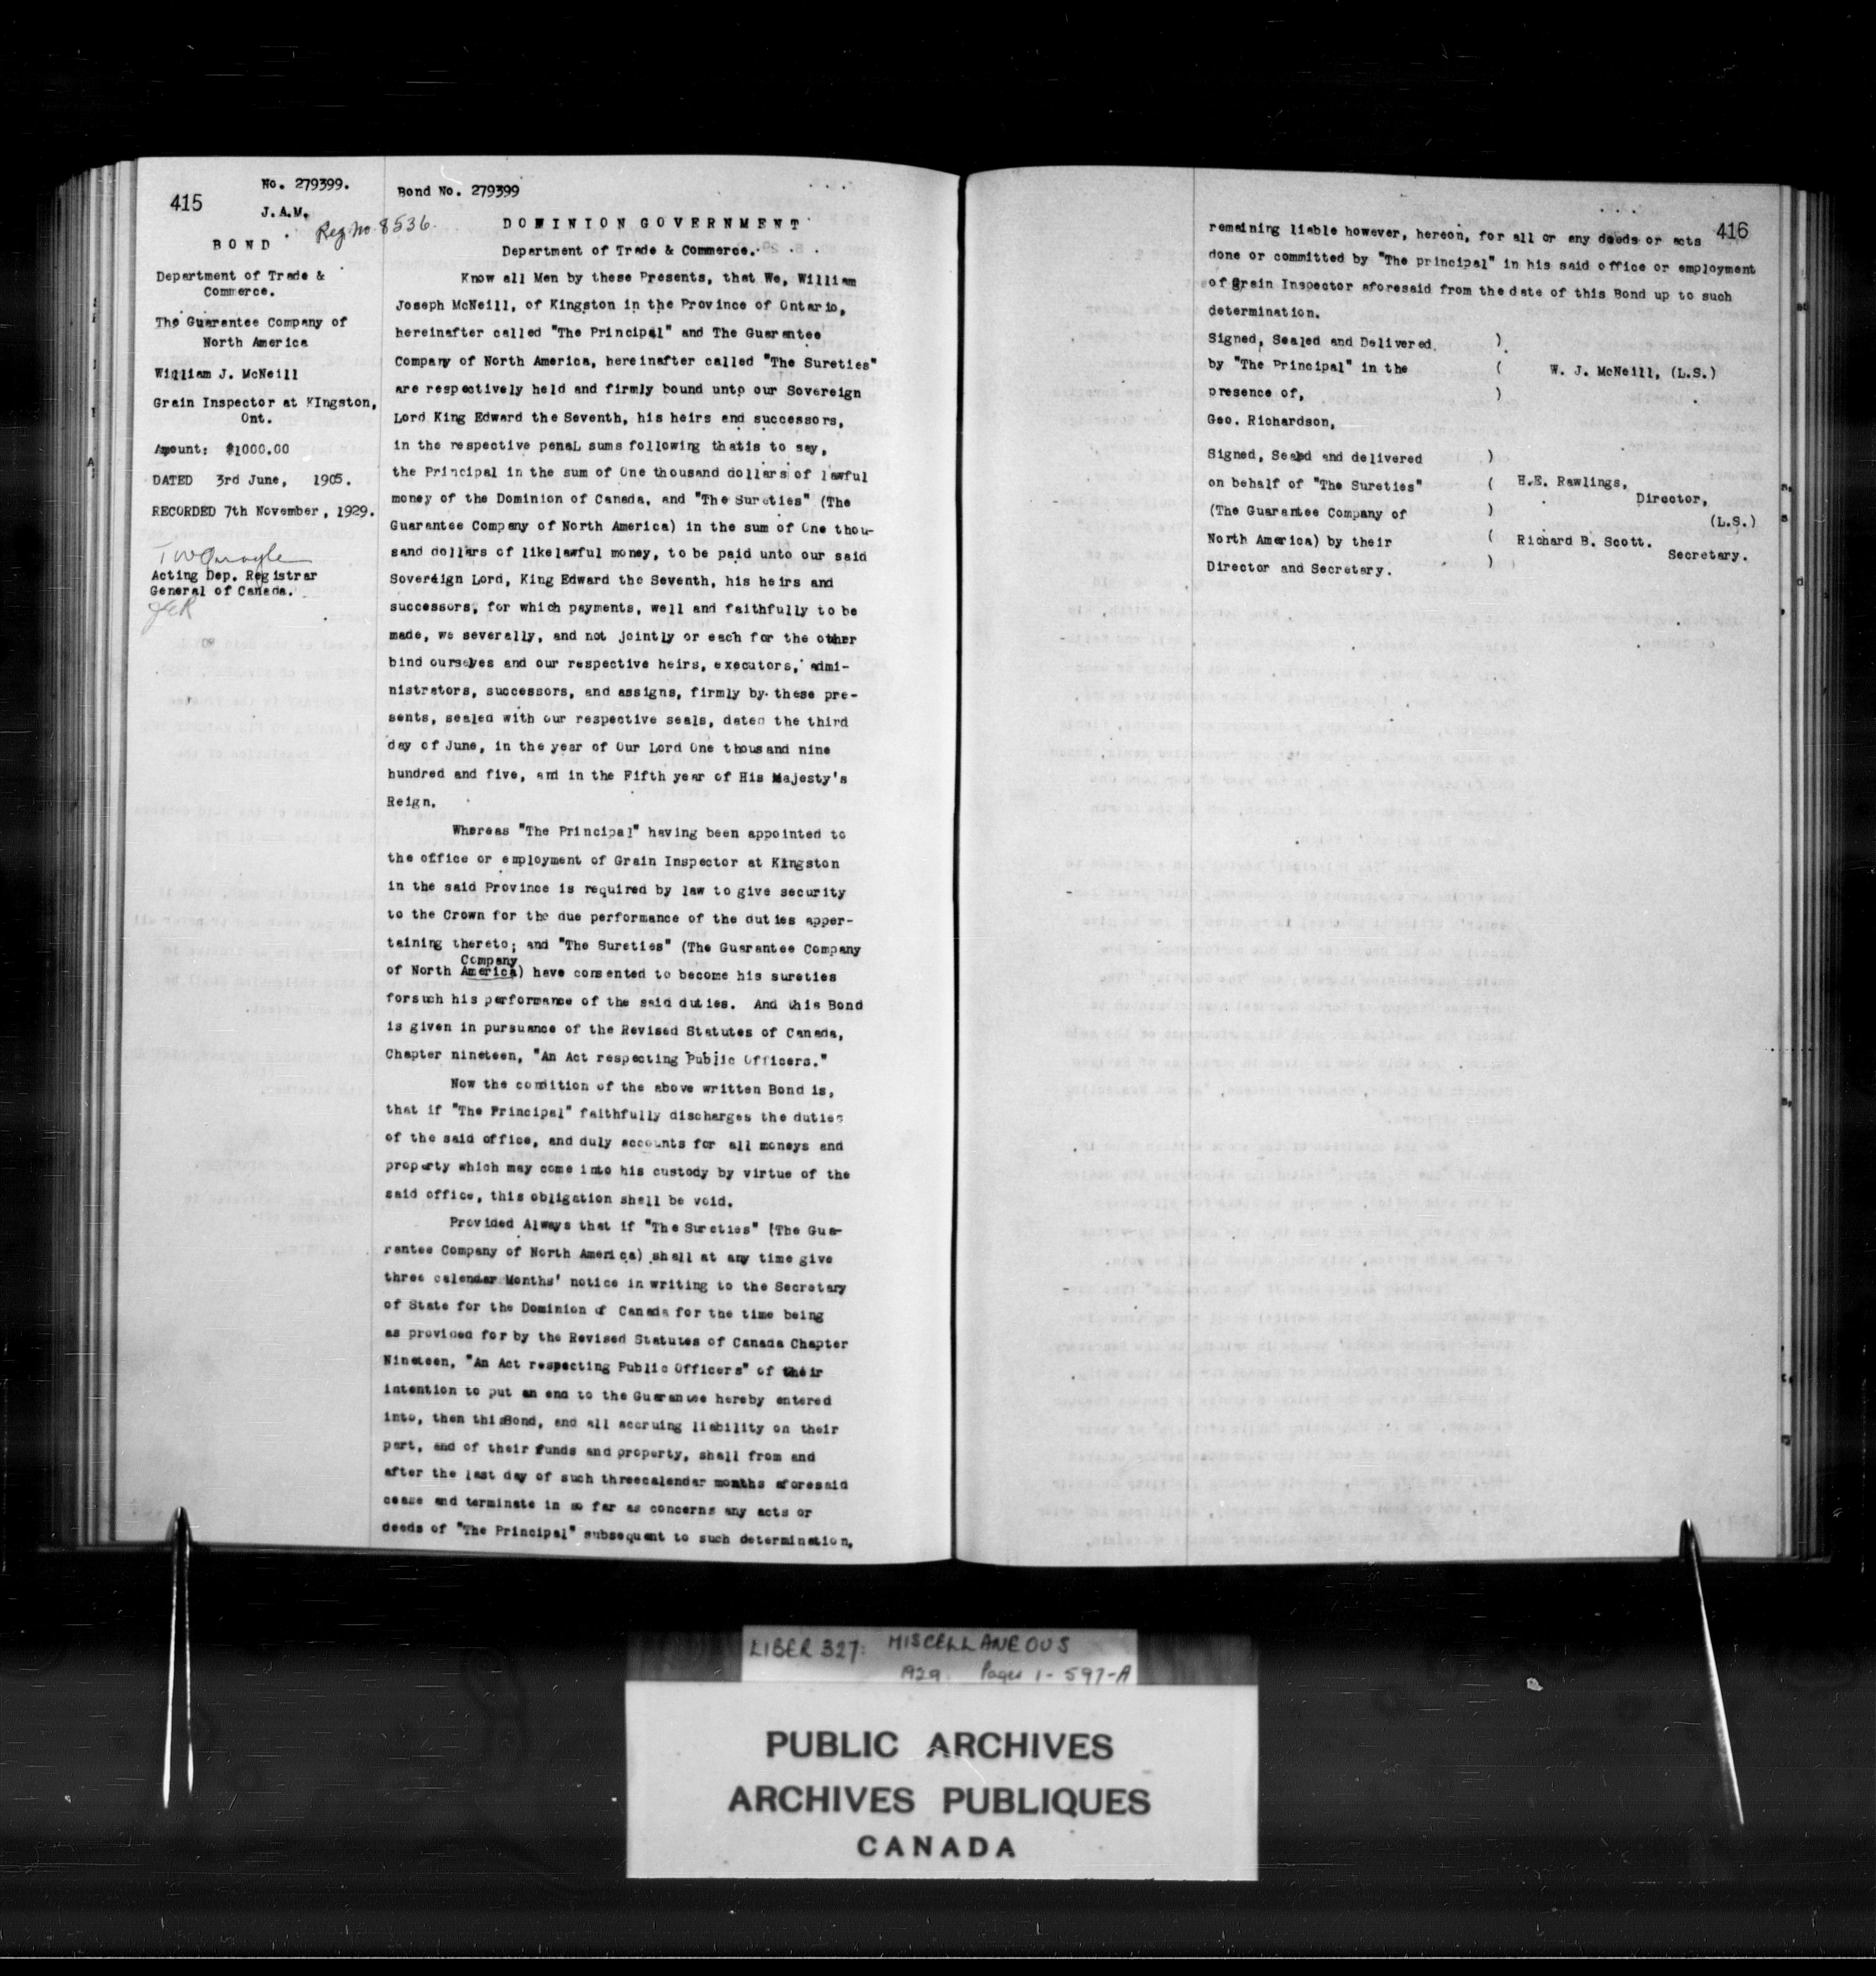 415
No. 279399.
J.A.M.
Reg. No. 8536.
BOND
Department of Trade &
Commerce.
The Guarantee Company of
North America
William J. McNeill
Grain Inspector at KIngston,
Ont.
Amount: $1000.00
DATED 3rd June, 1905.
RECORDED 7th November, 1929.
Acting Dep. Registrar
General of Canada.
Bond No. 279399
DOMINION GOVERNMENT
Department of Trade & Commerce.
Know all Men by these Presents, that We, William
Joseph McNeill, of Kingston in the Province of Ontario,
hereinafter called "The Principal" and The Guarantee
Company of North America, hereinafter called "The Sureties"
are respectively held and firmly bound unto our Sovereign
Lord King Edward the Seventh, his heirs and successors,
in the respective penaL sums following thatis to say,
the Principal in the sum of One thousand dollars of lawful
money of the Dominion of Canada, and "The Sureties" (The
Guarantee Company of North America) in the sum of One thou-
sand dollars of likelawful money, to be paid unto our said
Sovereign Lord, King Edward the Seventh, his heirs and
successors, for which payments, well and faithfully to be
made, we severally, and not jointly or each for the other
bind ourselves and our respective heirs, executors, admi-
nistrators, successors, and assigns, firmly by these pre-
sents, sealed with our respective seals, dated the third
day of June, in the year of Our Lord One thousand nine
hundred and five, and in the Fifth year of His Majesty's
Reign.
Whereas "The Principal" having been appointed to
the office or employment of Grain Inspector at Kingston
in the said Province is required by law to give security
to the Crown for the due performance of the duties apper-
taining thereto; and "The Sureties" (The Guarantee Company
Company
of North America) have consented to become his sureties
forsuch his performance of the said duties. And this Bond
is given in pursuance of the Revised Statutes of Canada,
Chapter nineteen, "An Act respecting Public Officers."
Now the condition of the above written Bond is,
that if "The Principal" faithfully discharges the duties
of the said office, and duly accounts for all moneys and
property which may come into his custody by virtue of the
said office, this obligation shall be void.
Provided Always that if "The Sureties" (The Gua-
rantee Company of North America) shall at any time give
three calendar Months' notice in writing to the Secretary
of State for the Dominion of Canada for the time being
as provided for by the Revised Statutes of Canada Chapter
Nineteen, "An Act respecting Public Officers" of their
intention to put an end to the Guarantee hereby entered
into, then thisBond, and all accruing liability on their
part, and of their funds and property, shall from and
after the last day of such threecalendar months aforesaid
cease and terminate in so far as concerns any acts or
deeds of "The Principal" subsequent to such determination,
416
remaining liable however, hereon, for all or any deeds or acts
done or committed by "The principal" in his said office or employment
of Grain Inspector aforesaid from the date of this Bond up to such
determination.
Signed, Sealed and Delivered )
by "The Principal" in the ( W. J. McNeill, (L.S.)
presence of, )
Geo. Richardson,
Signed, Sealed and delivered )
on behalf of "The Sureties" ( H.E. Rawlings,
Director,
(The Guarantee Company of ) (L.S.)
North America) by their ( Richard B. Scott.
Secretary.
Director and Secretary. )
LIBER 327: MISCELLANEOUS
1929. Pages 1-597-A
PUBLIC ARCHIVES
ARCHIVES PUBLIQUES
CANADA